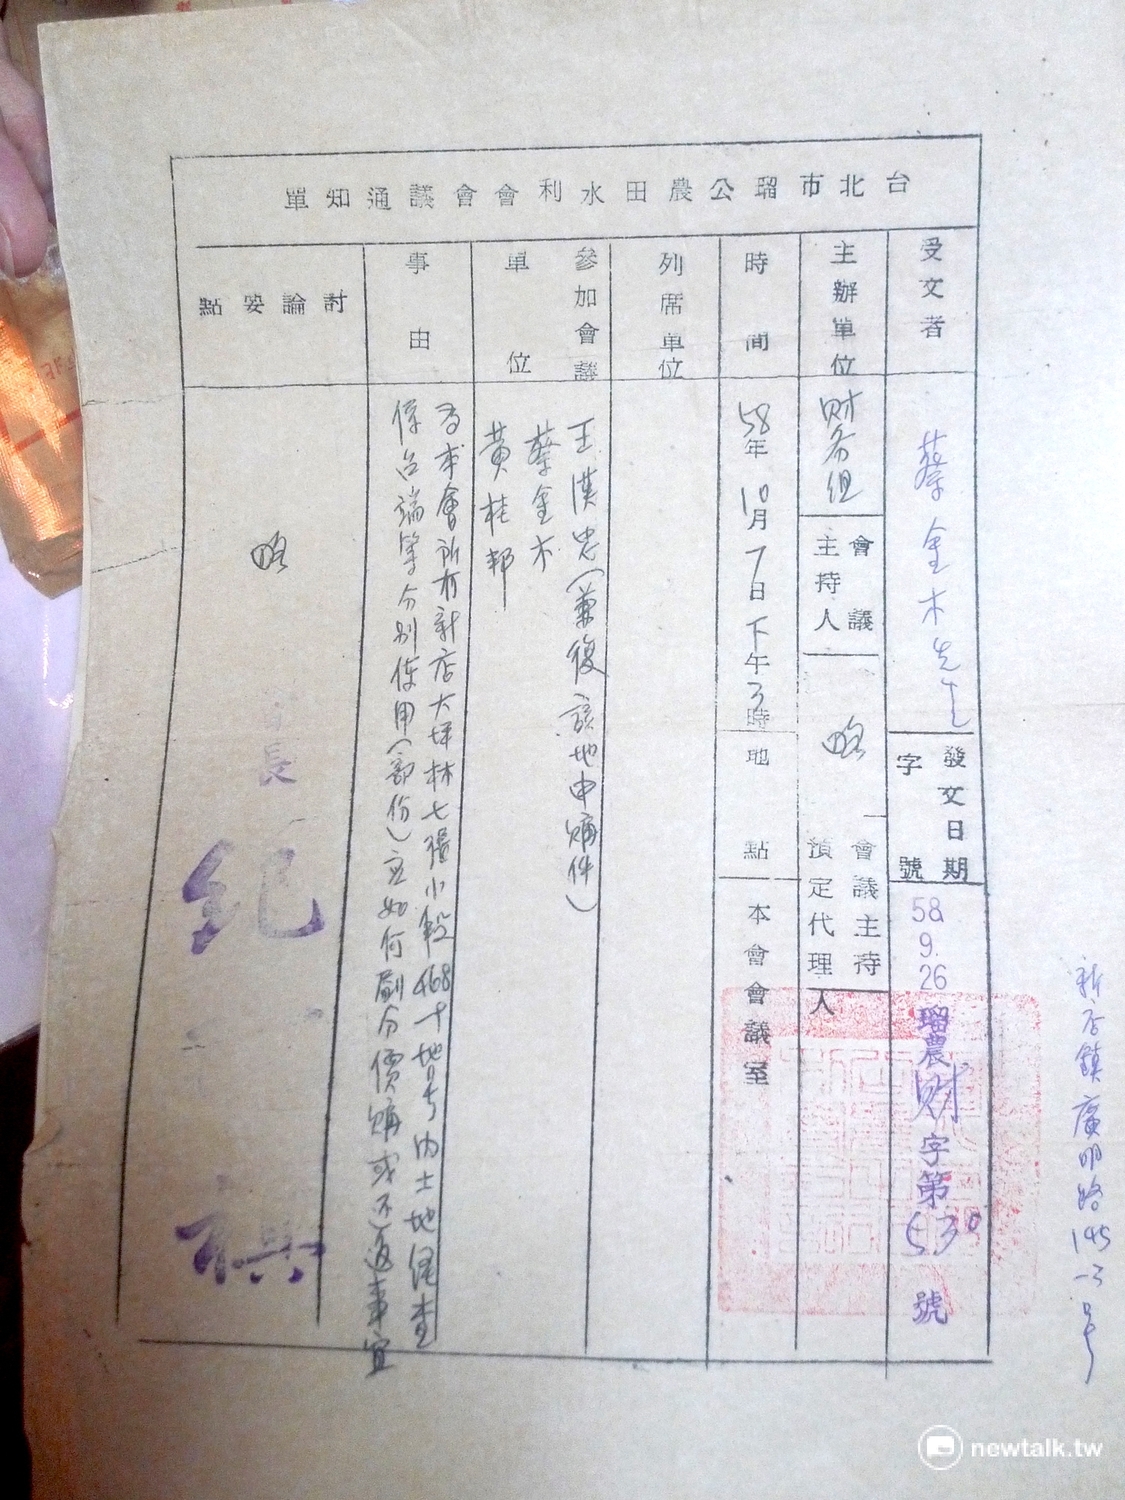 台北市瑠公農田水利會會議通知單
受文者
蔡金木先生
發文日期
字號
58.9.26
瑠農財字第530號
主辦單位
財務組
會議主持人
略
會議主持
預定代理人
時間
58年10月7日下午3時
地點
本會會議室
列席單位
參加會議單位
王漢忠(兼復該地申購件)
蔡金木
黃桂邦
事由
為本會所有新店大坪林七張小段468十地号內土地經查
係台端等分別使用(部份)应如何劃分價購或不返事宜
討論要點
略
會長
新店鎮廣明路145-3号
newtalk.tw